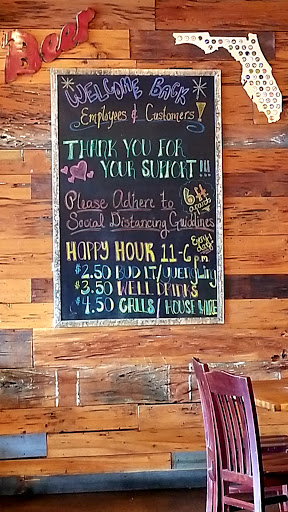 Beer
WELCOME BACK
Employees & Customers!
THANK YOU FOR
YOUR SUPPORT!!!
Please Adhere to
Social Distancing Guidlines
6 ft
apart
HAPPY HOUR 11-6 p.m
Every
day!
$2.50 BUD LT/YUENGLING
$3.50 WELL DRINKS
$4.50 CALLS/HOUSE WINE